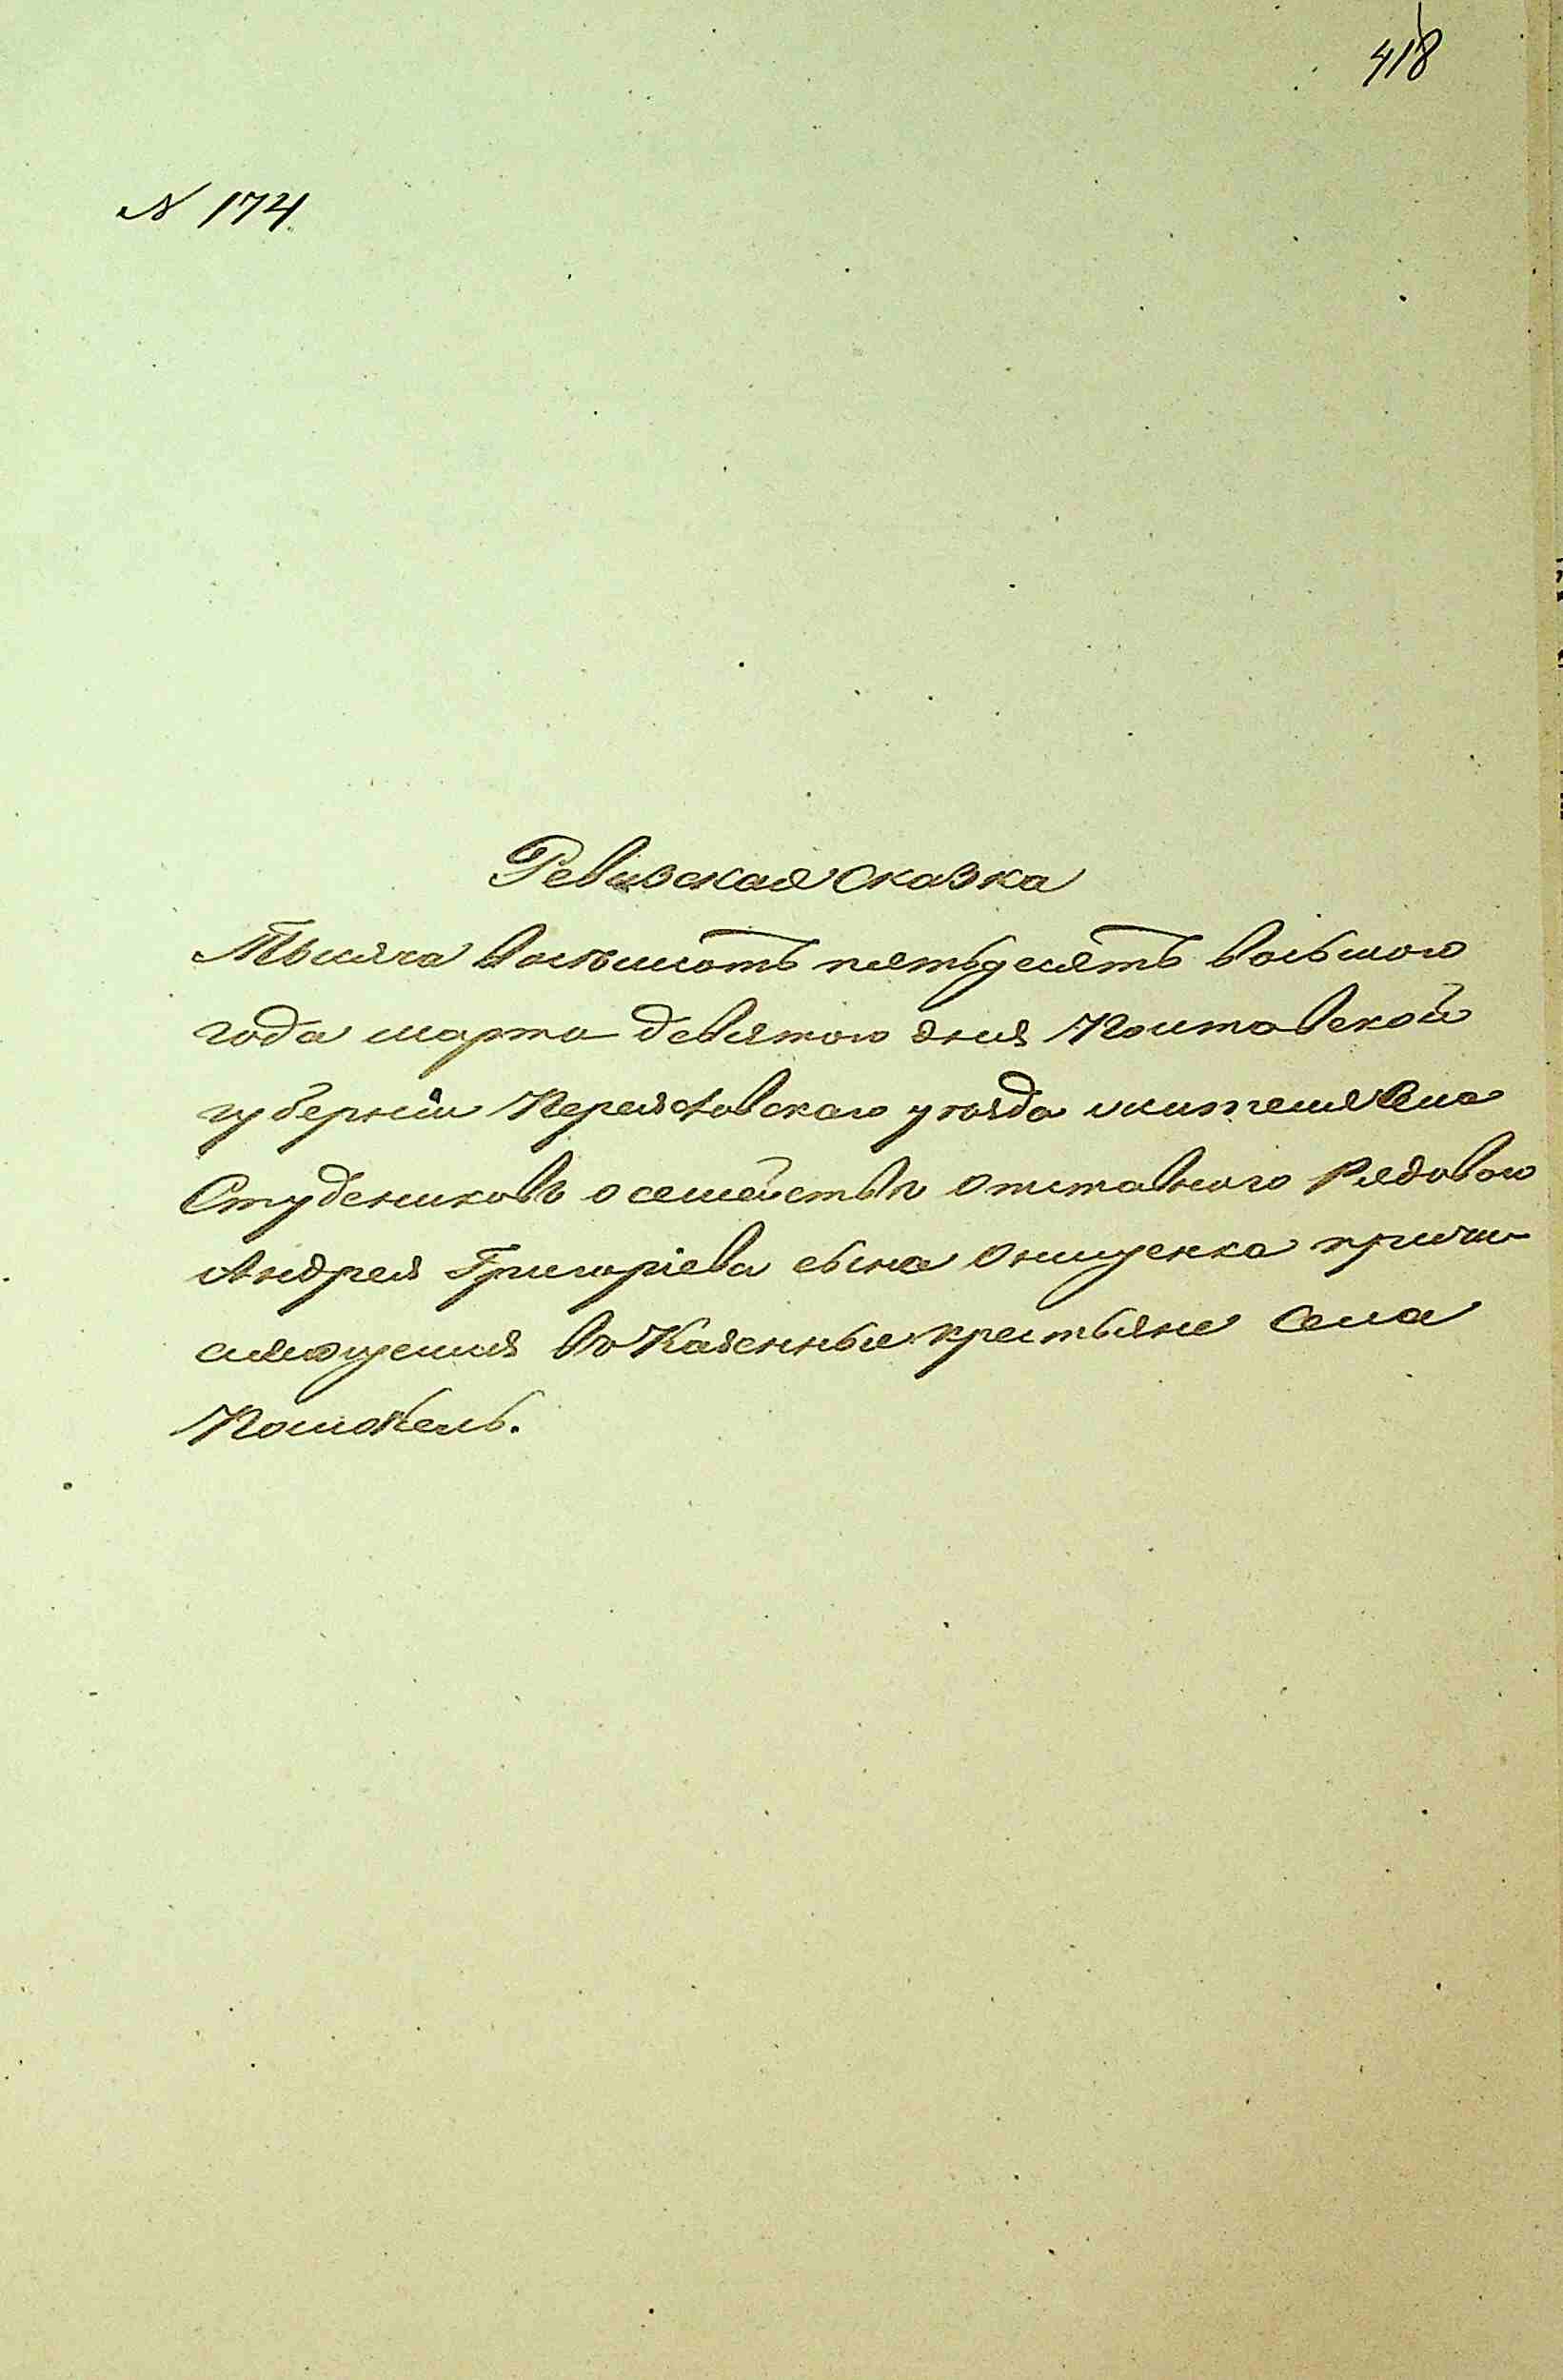 418
N 174
Ревизская сказка
Тысяча восемьсотъ пятьдесятъ восьмого
года марта девятого дня Полтавской
губерніи Переясловскаго уѣзда жителя Села
Студениковъ о семействѣ отставного Рядового
Андрея Григоріева сына Онищенка причи-
сляющемся въ Казенные крестьяне Села
Помокель.